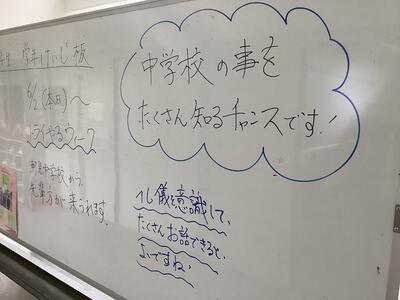 年生 学年けいじ板
6/2(本日)〜
ライやるウィーク
中学校から、
先輩方が来られます。
中学校の事を
たくさん知るチャンスです!
礼儀を意識して、
たくさんお話できると、
よいですね。